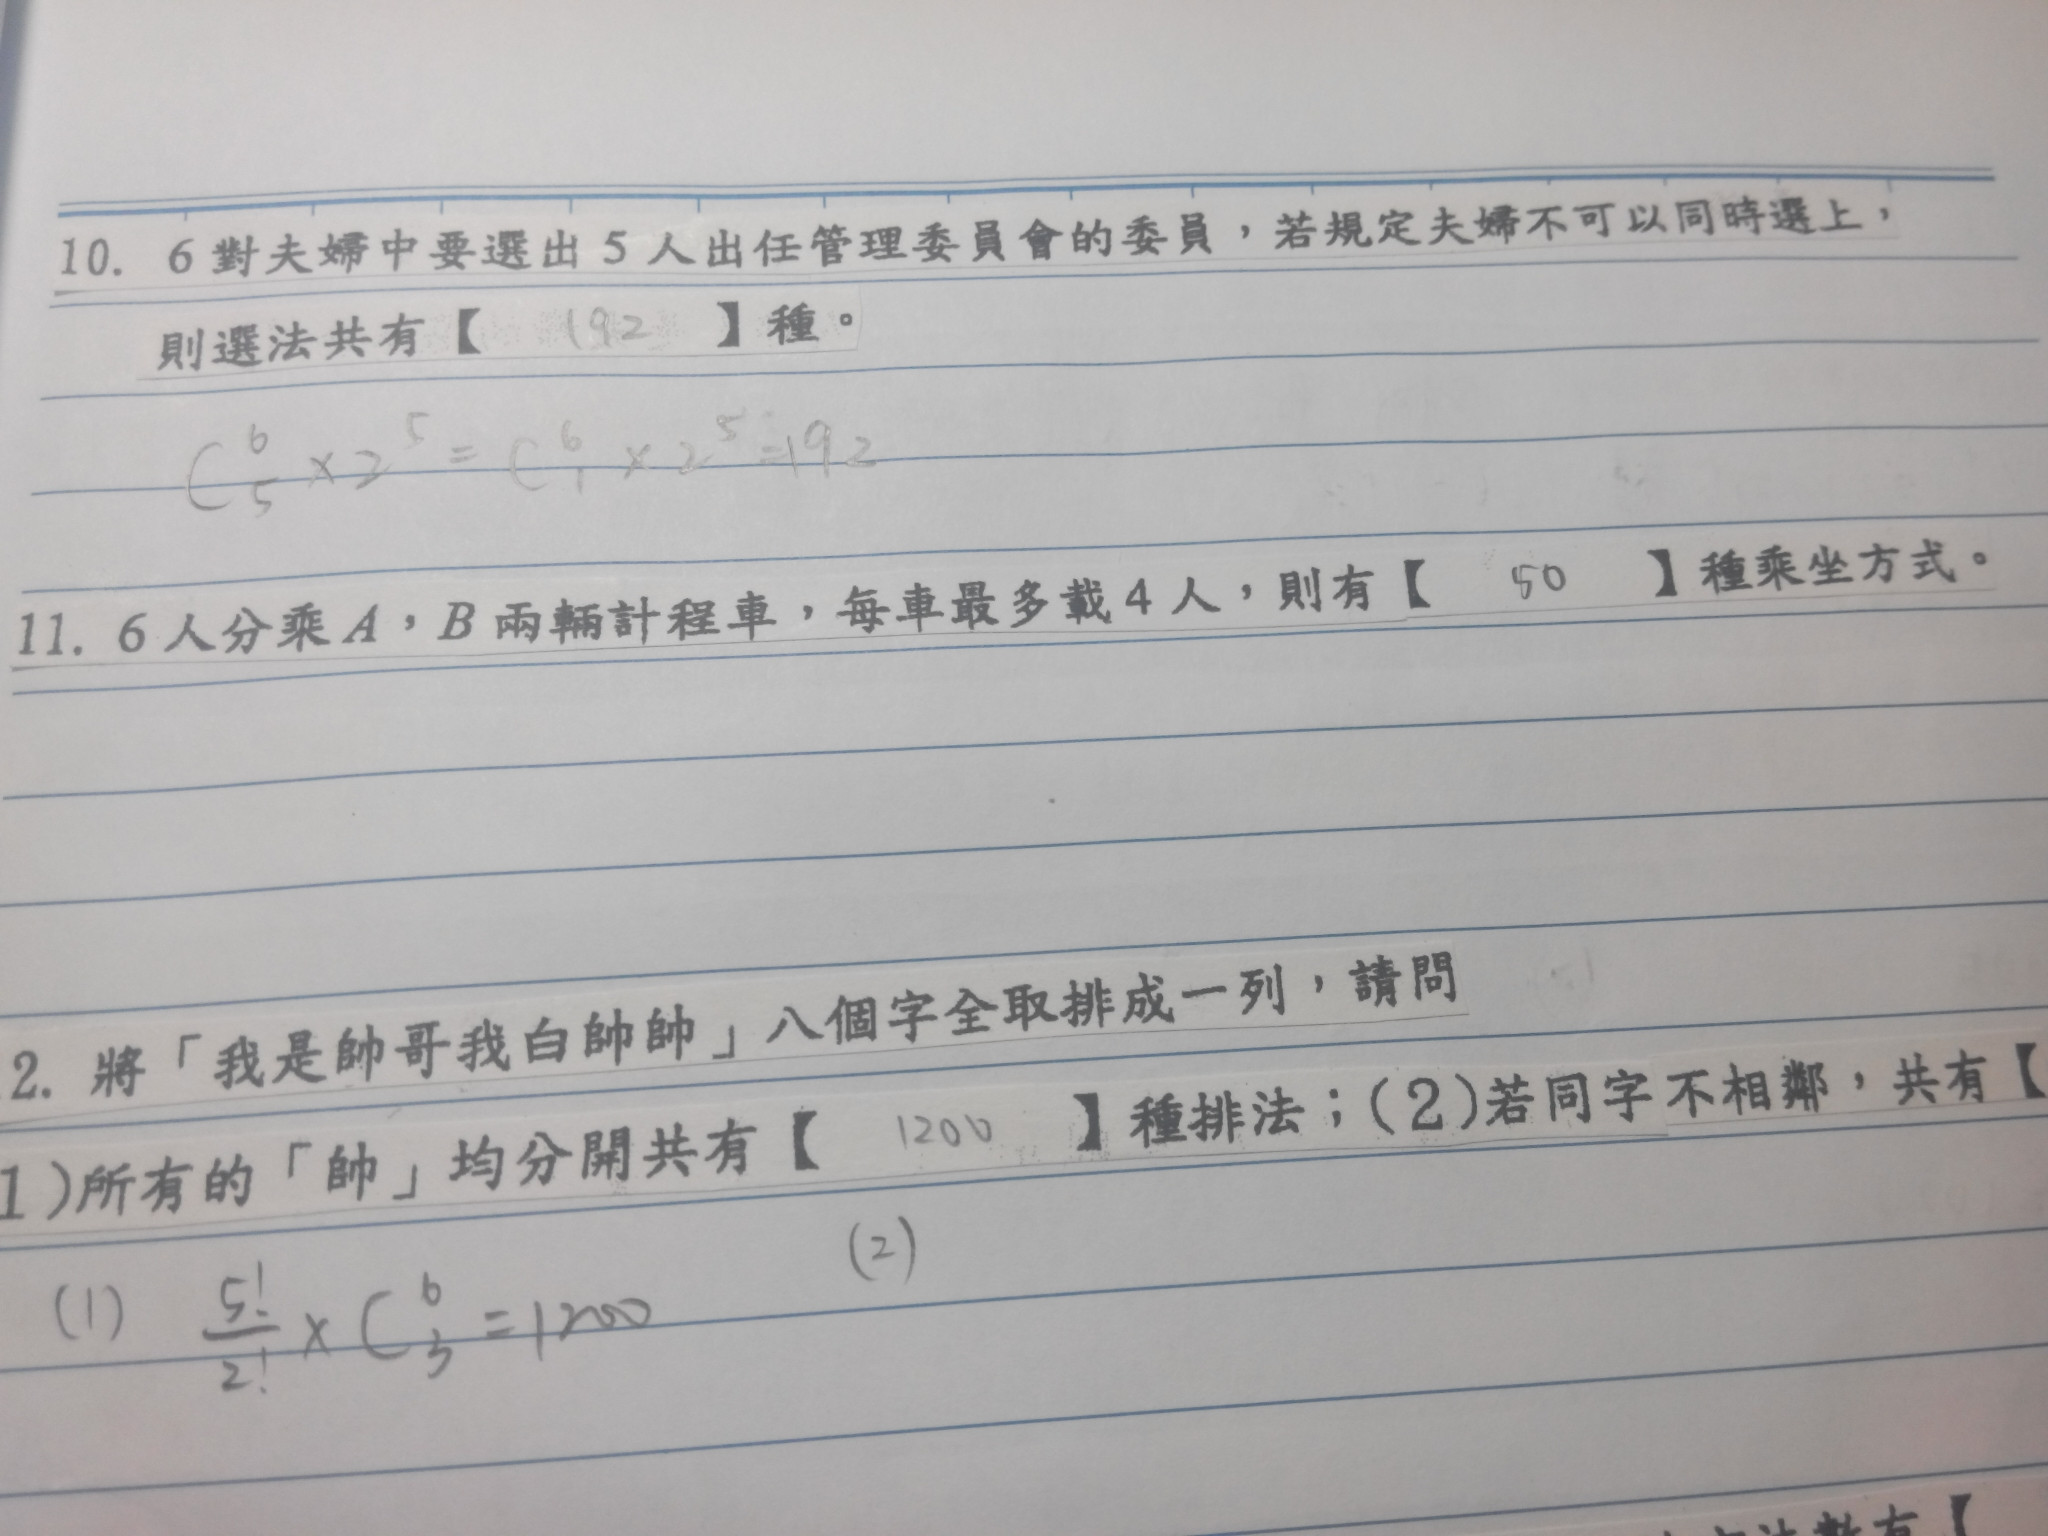 10. 6對夫婦中要選出5人出任管理委員會的委員，若規定夫婦不可以同時選上，
則選法共有【 192 】種。
C 6 5 × 2^5 = C 6 1 × 2^5 = 192
11. 6人分乘A，B兩輛計程車，每車最多載4人，則有【 50 】種乘坐方式。
2. 將「我是帥哥我白帥帥」八個字全取排成一列，請問
1)所有的「帥」均分開共有【 1200 】種排法；(2)若同字不相鄰，共有【
(1) 5!/2! × C 6 3 = 1200 (2)
數有【